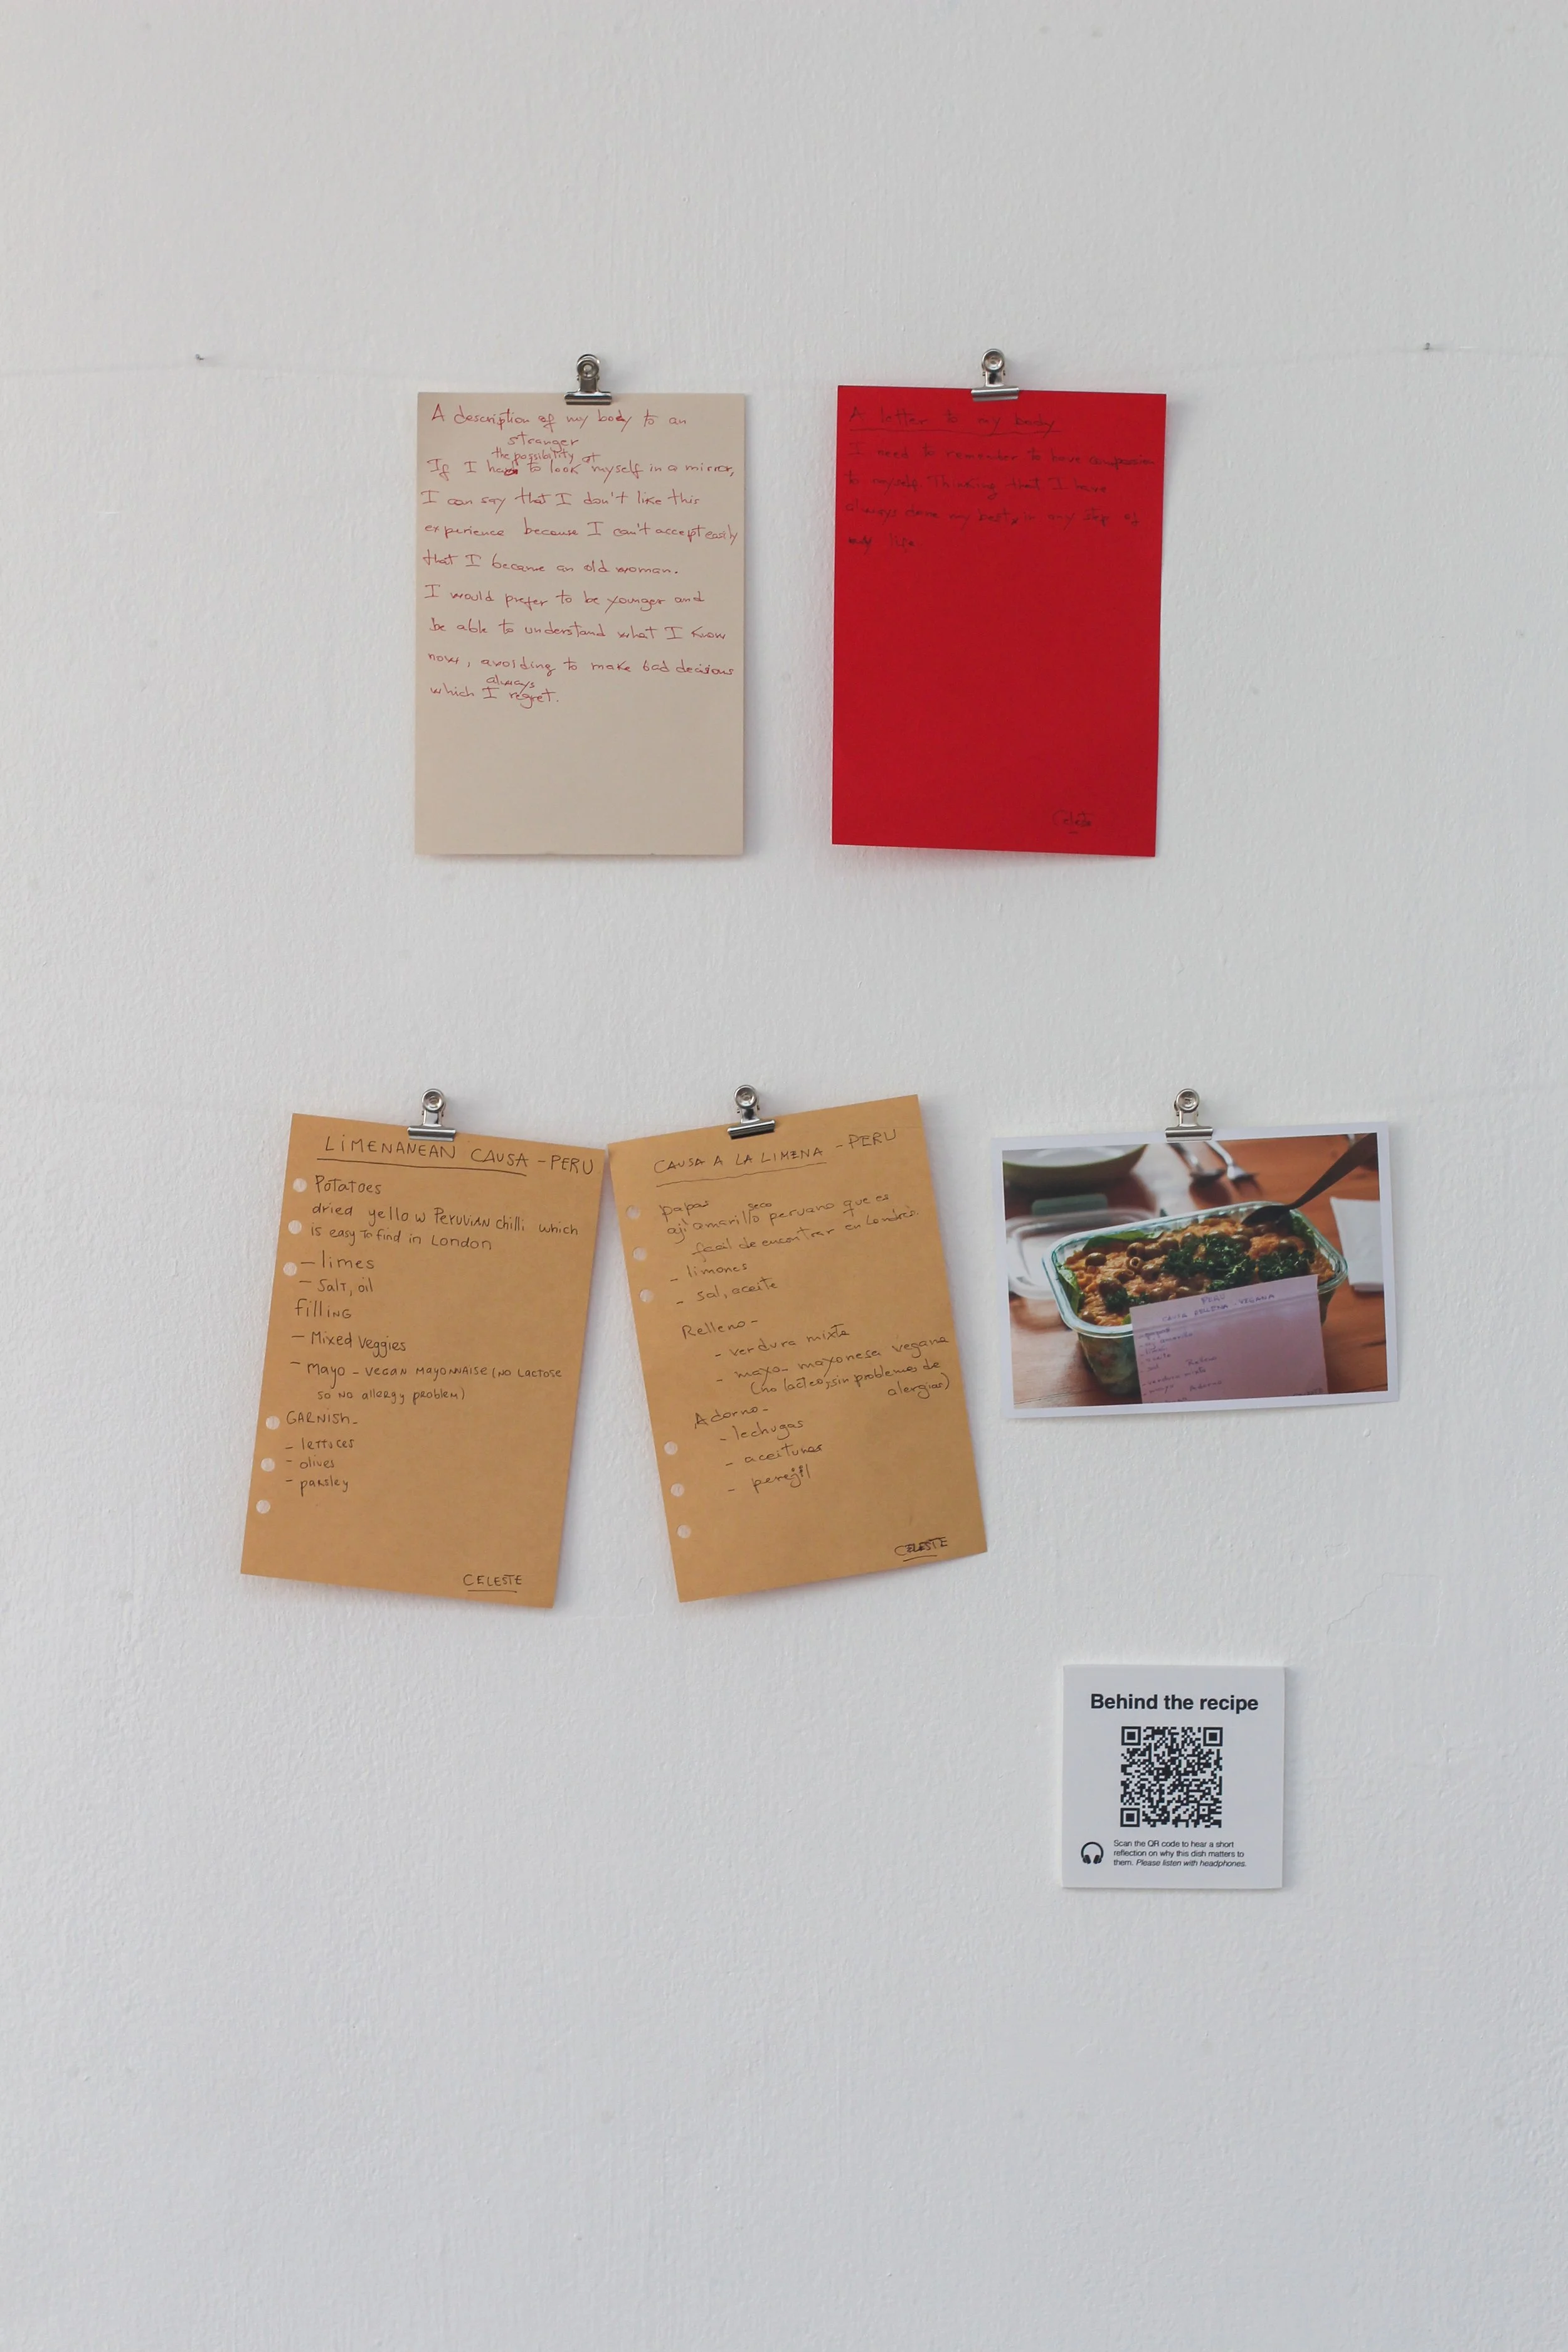 A description of my body to an
stranger
the possibility of
If I had to look myself in a mirror,
I can say that I don't like this
experience because I can't accept easily
that I became an old woman.
I would prefer to be younger and
be able to understand what I know
now, avoiding to make bad decisions
always
which I regret.
A letter to my body
I need to remember to have compassion
to myself. Thinking that I have
always done my best in any step of
my life.
Celeste
LIMENANEAN CAUSA - PERU
Potatoes
dried yellow PERUVIAN chilli which
is easy to find in London
- limes
- Salt, oil
filling
- Mixed veggies
- Mayo - VEGAN MAYONNAISE (NO LACTOSE
so no allergy problem)
GARNISH-
- lettuces
- olives
- parsley
CELESTE
CAUSA A LA LIMENA - PERU
papas
seco
aji amarillo peruano que es
facil de encontrar en Londres.
- limones
- sal, aceite
Relleno-
- verdura mixta
- mayo- mayonesa vegana
(no lacteo, sin problemas de
alergias)
Adorno-
- lechugas
- aceitunas
- perejil
CELESTE
PERU
CAUSA RELLENA - VEGANA
Relleno
Adorno
Behind the recipe
Scan the QR code to hear a short
reflection on why this dish matters to
them. Please listen with headphones.